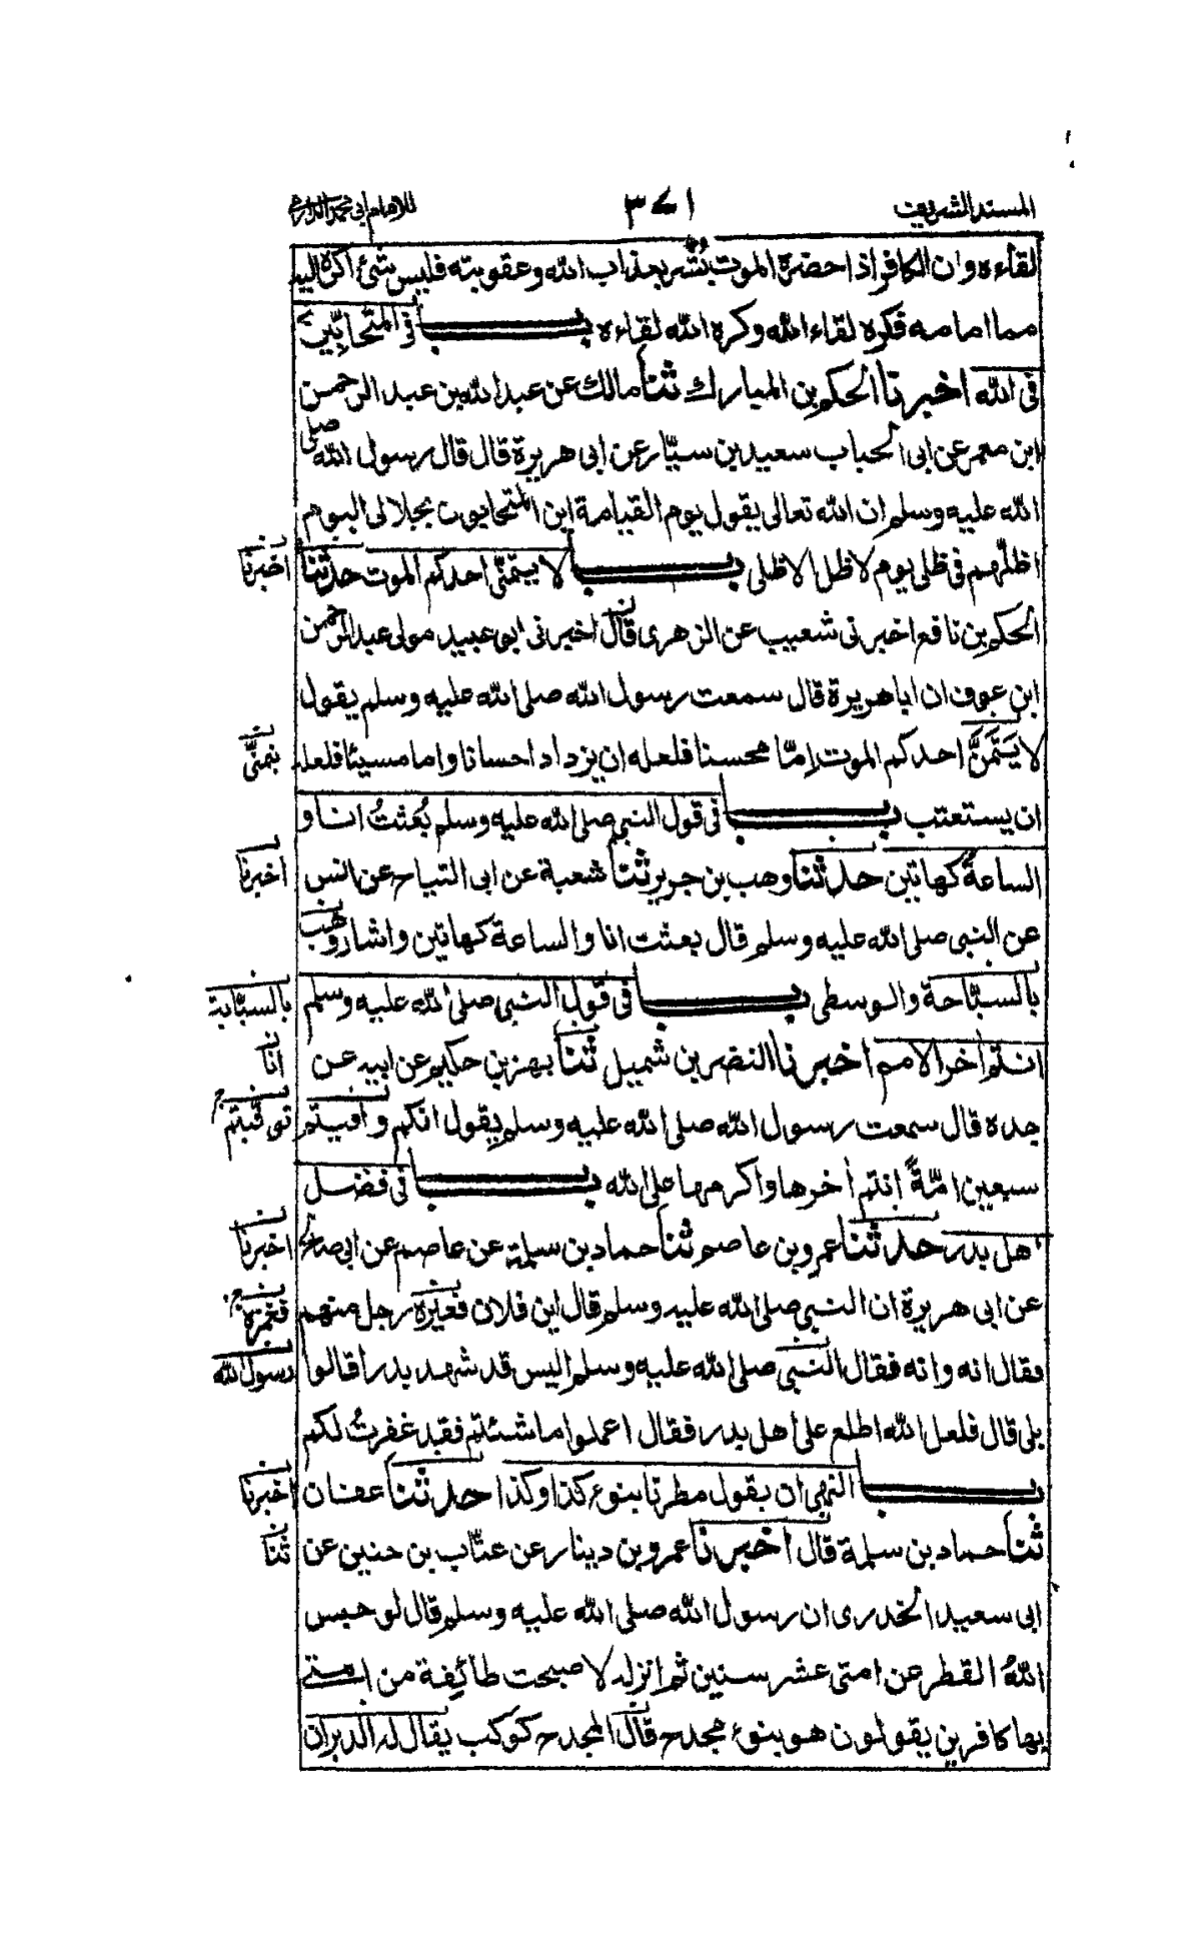 المسند الشريف ٣٧١ للامام ابي محمد الدارمي
لقاءه وان الكافر اذا حضره الموت بُشّر بعذاب الله وعقوبته فليس شئ اكره اليه
مما امامه فكره لقاء الله وكره الله لقاءه باب في المتحابّين
في الله اخبرنا الحكم بن المبارك ثنا مالك عن عبد الله بن عبد الرحمن
ابن معمر عن ابى الحباب سعيد بن سيّار عن ابى هريرة قال قال رسول الله صلى
الله عليه وسلم ان الله تعالى يقول يوم القيامة اين المتحابون بجلالى اليوم
اظلّهم فى ظلى يوم لا ظل الا ظلى باب لا يتمنّى احدكم الموت حدثنا اخبرنا
الحكم بن نافع اخبرنى شعيب عن الزهرى قال اخبرنى ابو عبيد مولى عبد الرحمن
ابن عوف ان ابا هريرة قال سمعت رسول الله صلى الله عليه وسلم يقول
لا يَتَمَنَّ احدكم الموت اِمّا محسنا فلعله ان يزداد احسانا واما مسيئا فلعله يتمنّى
ان يستعتب باب فى قول النبى صلى الله عليه وسلم بُعثتُ انا و
الساعةُ كهاتين حدثنا وهب بن جرير ثنا شعبة عن ابى التياح عن انس اخبرنا
عن النبى صلى الله عليه وسلم قال بعثت انا والساعة كهاتين واشار وهب
بالسبّاحة والوسطى باب فى قول النبى صلى الله عليه وسلم بالسبّابة
انتم اٰخر الامم اخبرنا النضر بن شميل ثنا بهز بن حكيم عن ابيه عن انا
جده قال سمعت رسول الله صلى الله عليه وسلم يقول انكم وافيتم
سبعين امّةً انتم اٰخرها واكرمها على الله باب فى فضل
اهل بدر حدثنا عمرو بن عاصم ثنا حماد بن سلمة عن عاصم عن ابى صالح اخبرنا
عن ابى هريرة ان النبى صلى الله عليه وسلم قال اين فلان فغيّره رجل منهم فغمزه
فقال انه وانه فقال النبى صلى الله عليه وسلم اليس قد شهد بدرا قالوا رسول الله
بلى قال فلعل الله اطلع على اهل بدر فقال اعملوا ما شئتم فقد غفرتُ لكم
باب النهى ان يقول مطرنا بنوء كذا وكذا حدثنا عفان اخبرنا
ثنا حماد بن سلمة قال اخبرنا عمرو بن دينار عن عتّاب بن حنين عن ثنا
ابى سعيد الخدرى ان رسول الله صلى الله عليه وسلم قال لو حبس
اللهُ القطر عن امتى عشر سنين ثم انزله لاصبحت طائفة من امتى
بها كافرين يقولون هو بنوء مجدح قال المجدح كوكب يقال له الدبران